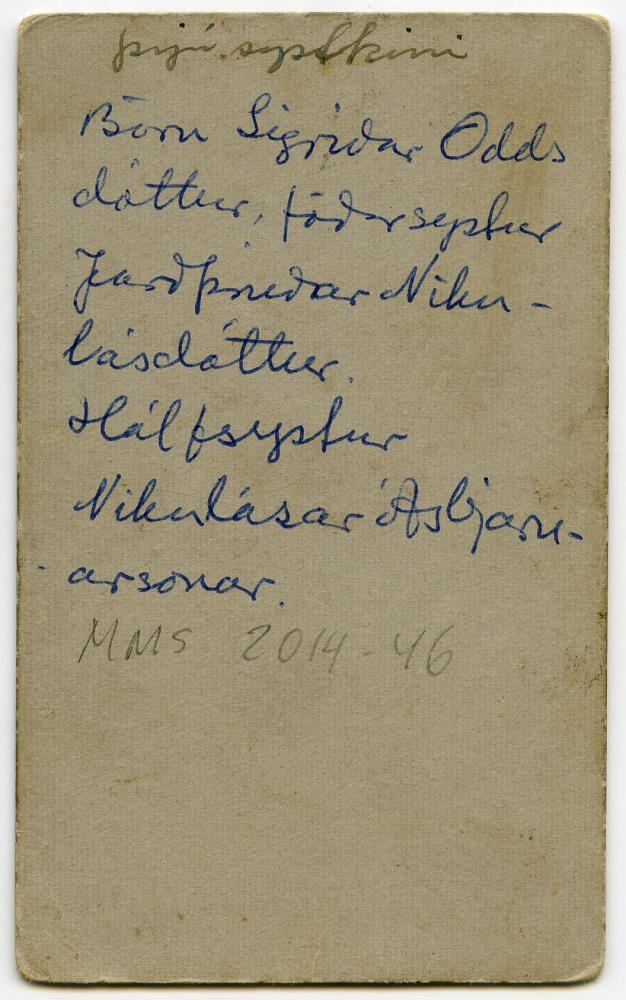 þrjú systkini
Börn Sigríðar Odds
dóttur, föðursystur
Jarðþrúðar Niku-
lásdóttur.
Hálfsystur
Nikulásar Ásbjarn-
arsonar.
MMS 2014-46